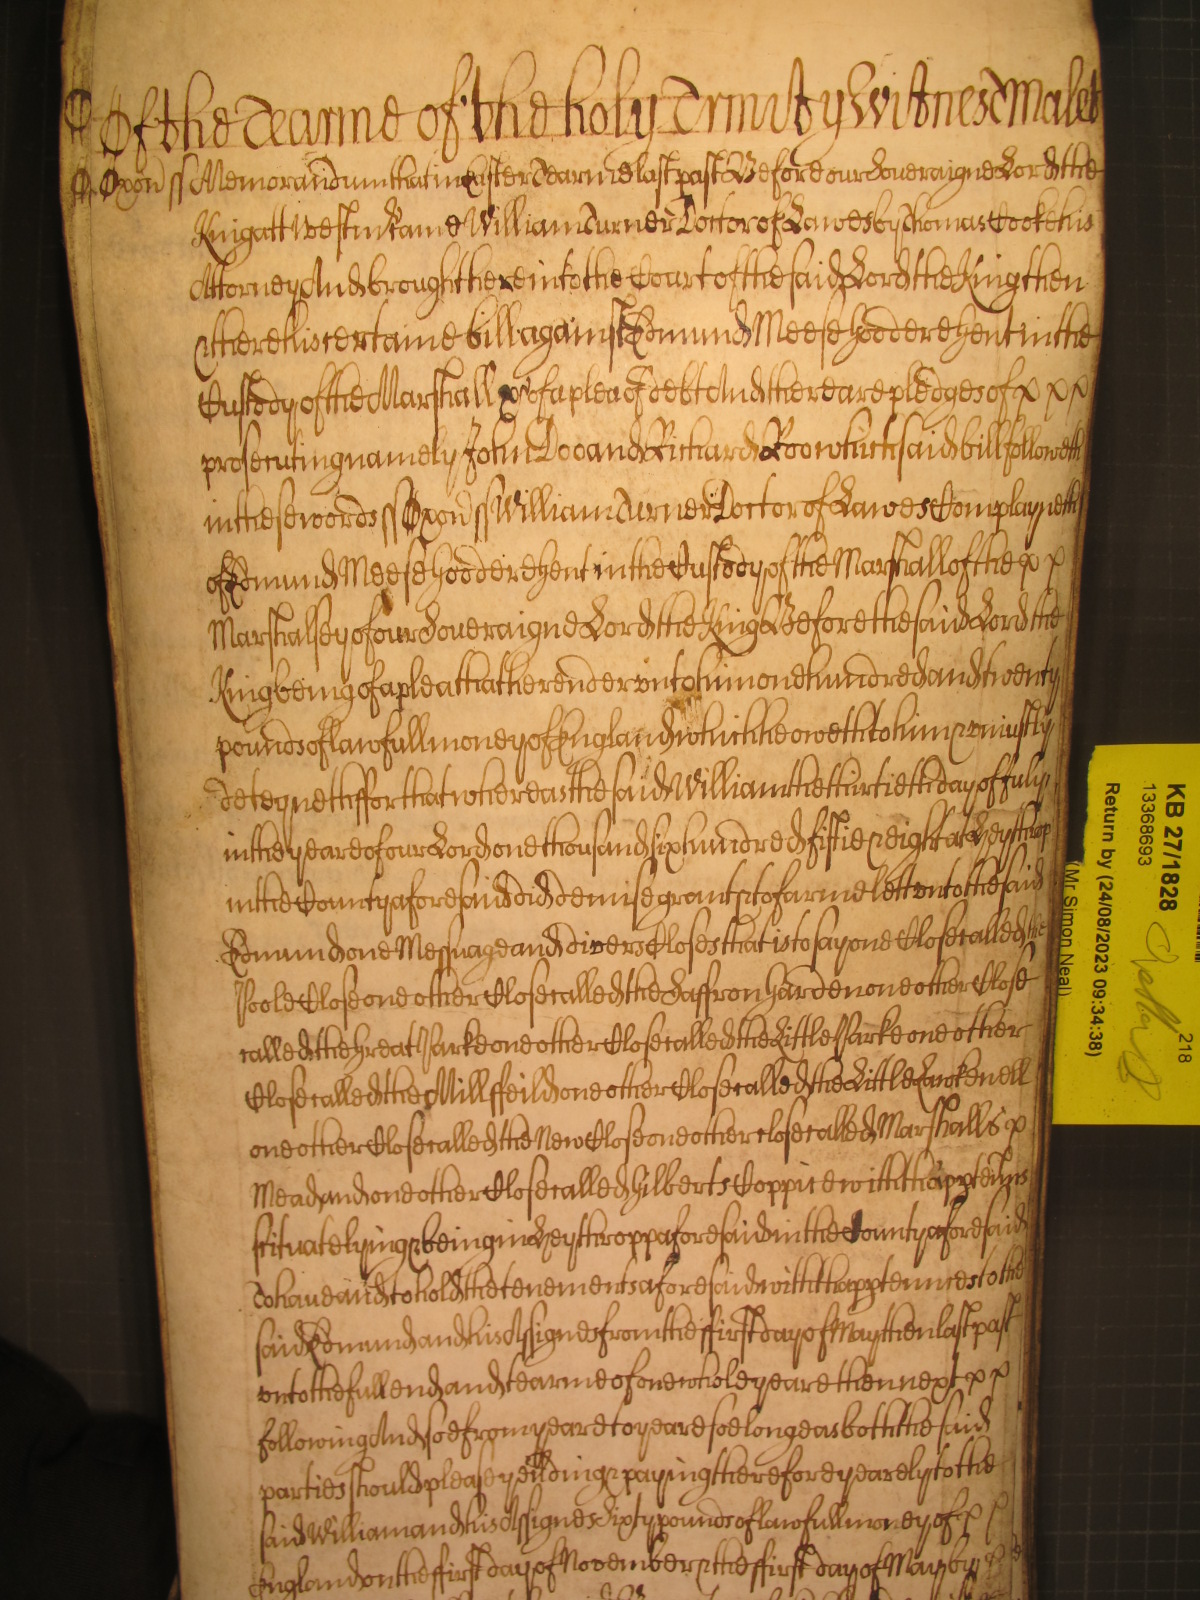 Of the Tearme of the holy Trinity Witnes Malet
Oxon ss Memorandum that in Easter Tearme last past Before our Soveraigne Lord the
King att Westm Came William Turner Doctor of Lawes by Thomas Cooke his
Attorney And brought here into the Court of the said Lord the King then
there his certaine bill against Edmund Meese gent in the
Custody of the Marshall &c of a plea of debt And there are pledges of
prosecuting namely John Doo and Richard Roo which said bill followeth
in these words ss Oxon ss William Turner Doctor of Lawes Complayneth
of Edmund Meese gent in the Custody of the Marshall of the
Marshalsey of our Soueraigne Lord the King Before the said Lord the
King being of a plea that he render vnto him one hundred and twenty
pounds of lawfull money of England which he oweth to him & vniustly
deteyneth ffor that whereas the said William the thirtieth day of July
in the yeare of our Lord one thousand six hundred fiftie & eight at Heythrop
in the County aforesaid did demise grant & to farme lett vnto the said
Edmund one Messuage and divers Closes that is to say one Close called the
Poole Close one other Close called the Saffron Garden one other Close
called the Great Parke one other Close called the Little Parke one other
Close called the Mill ffeild one other Close called the Little
one other Close called the New Close one other close called Marshalls
Mead and one other Close called Gilberts Coppice with th'apptennces
scituate lying & being in Heythropp aforesaid in the County aforesaid
To haue and to hold the tenements aforesaid with th'apptennces to the
said Edmund and his Assignes from the ffirst day of May then last past
vnto the full end and tearme of one whole yeare then next
following And soe from yeare to yeare soe long as both the said
parties should please yeilding & paying therefore yearely to the
said William and his Assignes Sixty pounds of lawfull money of
England on the ffirst day of November & the ffirst day of May by
KB 27/1828
13368693
Return by (24/08/2023 09:34:38)
(Mr Simon Neal)
218